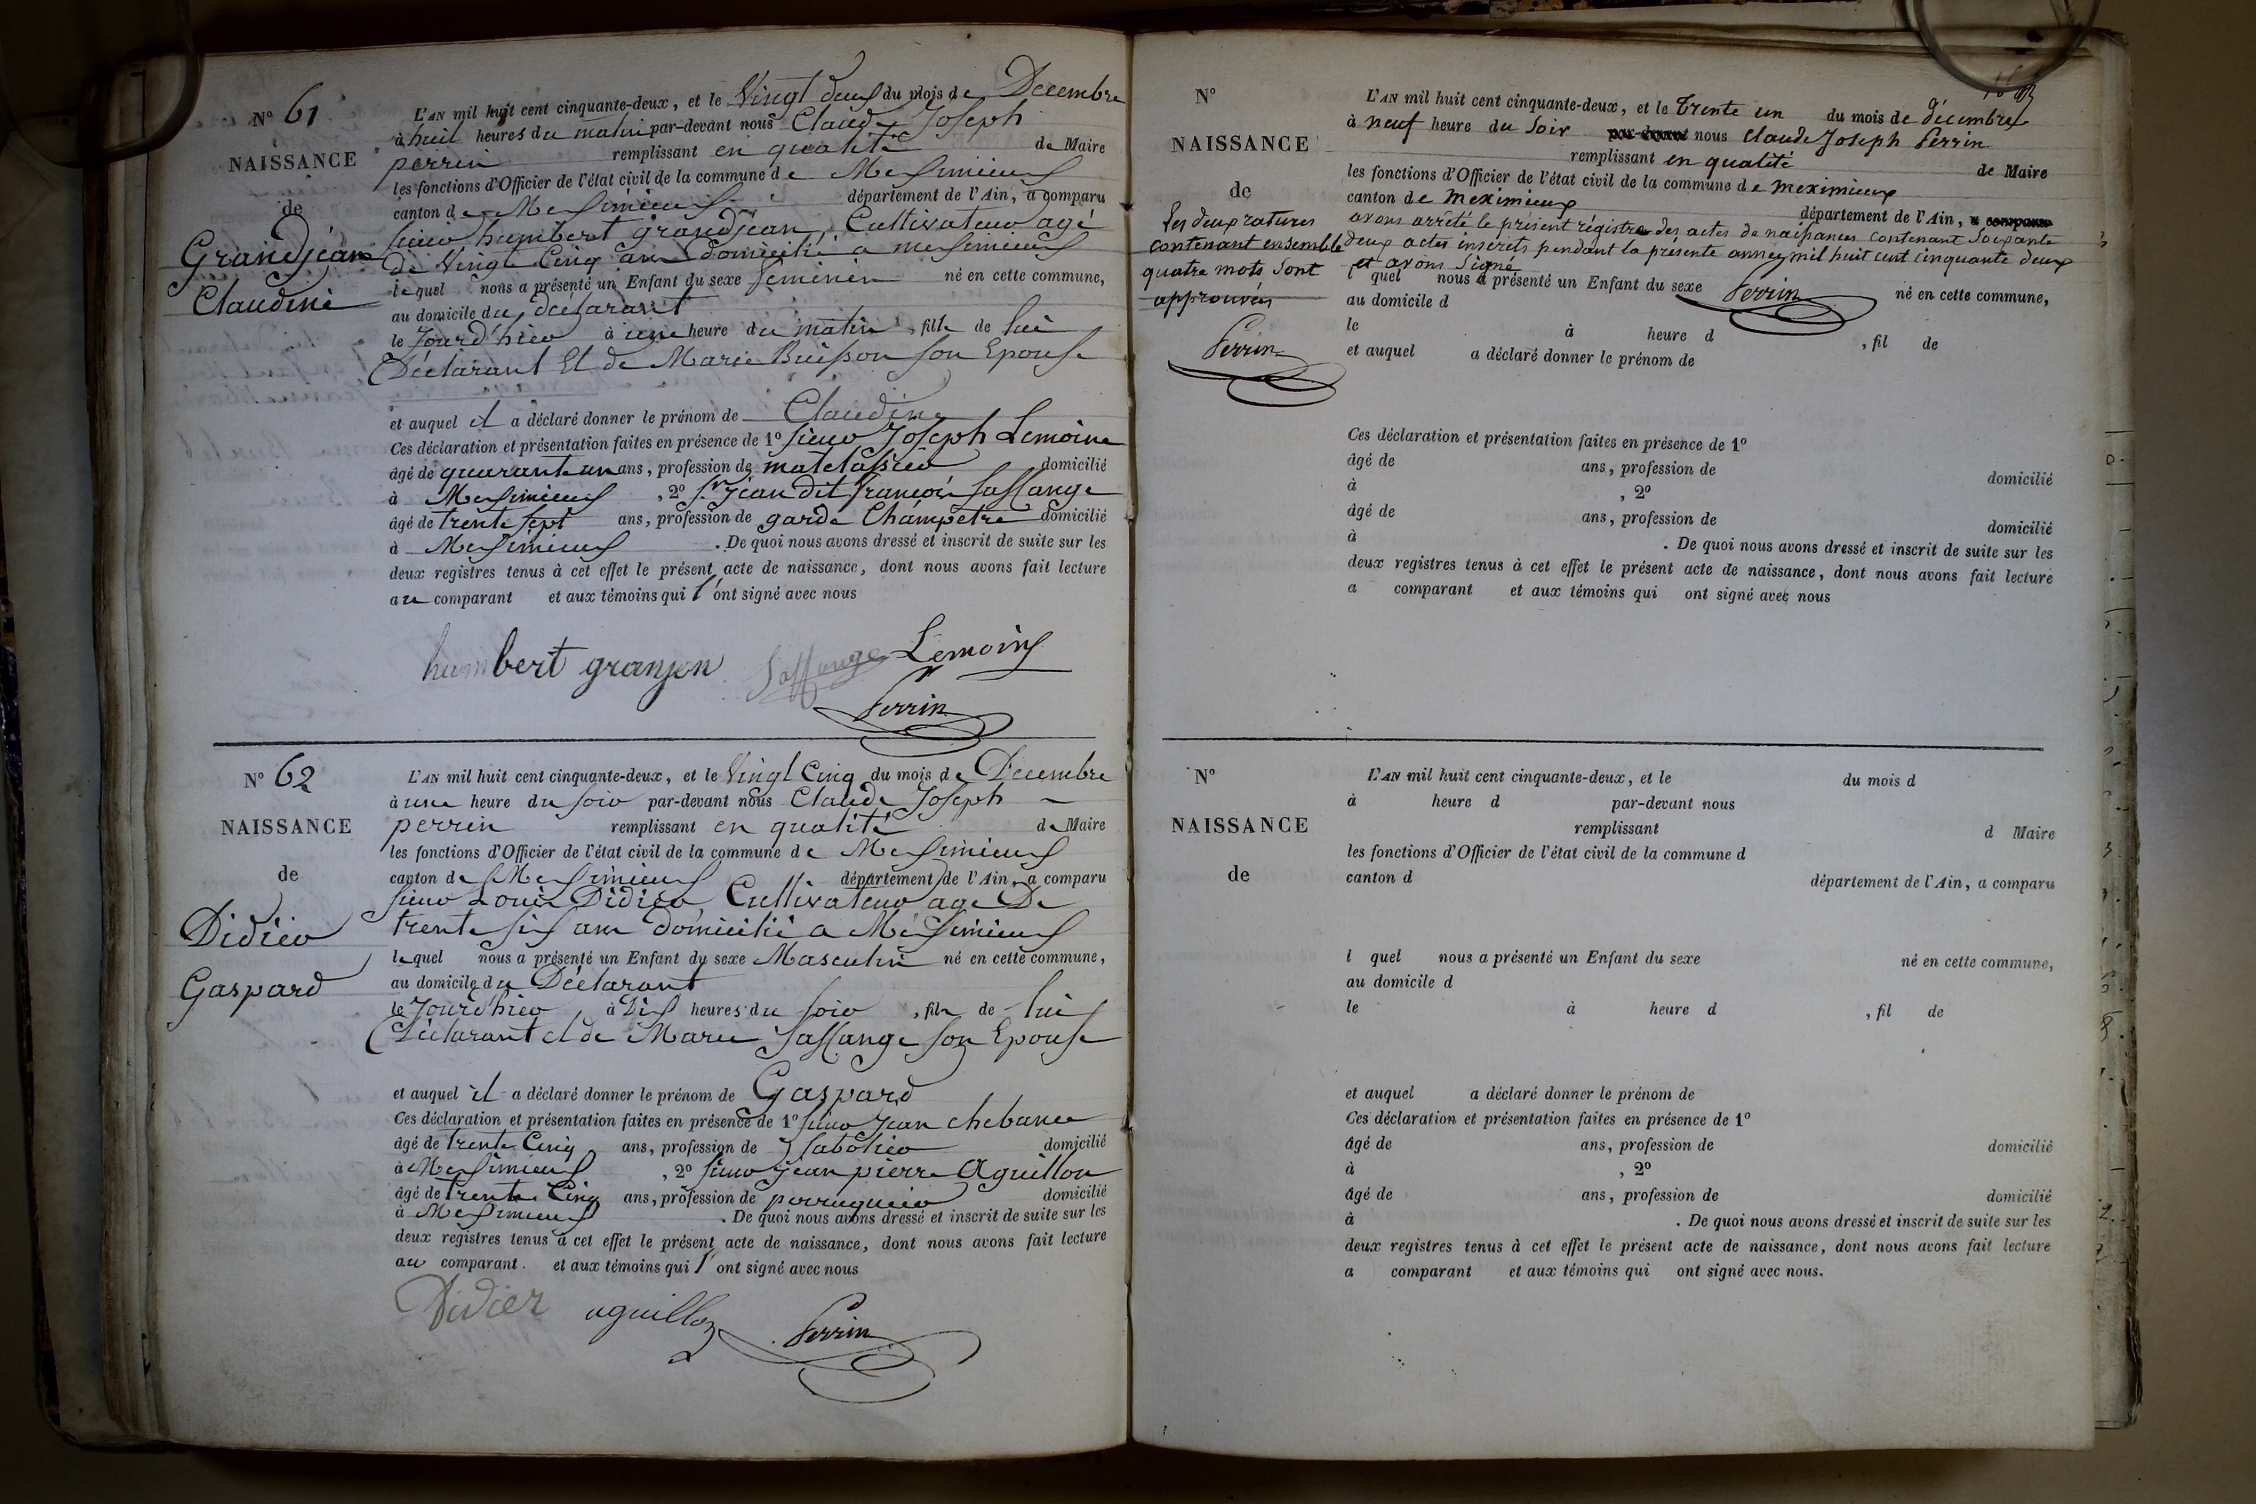 N° 61
NAISSANCE
de
Grandjean
Claudine
L'AN mil huit cent cinquante-deux, et le Vingt deux du mois de Decembre
à huit heures du matin par-devant nous Claude Joseph
perrin remplissant en qualité de Maire
les fonctions d'Officier de l'état civil de la commune de Meximieux
canton de Meximieux département de l'Ain, a comparu
sieur humbert grandjean, Cultivateur agé
de Vingt Cinq ans domicilié a meximieux
lequel nous a présenté un Enfant du sexe feminin né en cette commune,
au domicile du déclarant
le Jourd'hier à une heure du matin, fille de lui
Déclarant Et de Marie Buisson son Epouse
et auquel il a déclaré donner le prénom de Claudine
Ces déclaration et présentation faites en présence de 1° sieur Joseph Lemoine
âgé de quarante un ans, profession de matelassier domicilié
à Meximieux, 2° sr jean dit francois Saffange
âgé de trente sept ans, profession de garde Champetre domicilié
à Meximieux. De quoi nous avons dressé et inscrit de suite sur les
deux registres tenus à cet effet le présent acte de naissance, dont nous avons fait lecture
au comparant et aux témoins qui l' ont signé avec nous
humbert granjen Saffange Lemoine
Perrin
N° 62
NAISSANCE
de
Didier
Gaspard
L'AN mil huit cent cinquante-deux, et le Vingt Cinq du mois de Decembre
à une heure du soir par-devant nous Claude Joseph
perrin remplissant en qualité de Maire
les fonctions d'Officier de l'état civil de la commune de Meximieux
canton de Meximieux département de l'Ain, a comparu
sieur Louis Didier, Cultivateur age De
trente six ans domicilié a Méximieux
lequel nous a présenté un Enfant du sexe Masculin né en cette commune,
au domicile du Déclarant
le Jourd'hier à Dix heures du soir, fils de lui
Déclarant et de Marie Saffange son Epouse
et auquel il a déclaré donner le prénom de Gaspard
Ces déclaration et présentation faites en présence de 1° sieur Jean
âgé de trente Cinq ans, profession de sabotier domicilié
à Meximieux, 2° sieur jean pierre Aguillon
âgé de trente Cinq ans, profession de perruquier domicilié
à Meximieux. De quoi nous avons dressé et inscrit de suite sur les
deux registres tenus à cet effet le présent acte de naissance, dont nous avons fait lecture
au comparant. et aux témoins qui l' ont signé avec nous
Didier aguillon Perrin
N°
NAISSANCE
de
Les deux ratures
contenant ensemble
quatre mots sont
approuvées
Perrin
L'AN mil huit cent cinquante-deux, et le trente un du mois de décembre
à neuf heure du soir par-devant nous Claude Joseph Perrin
remplissant en qualité de Maire
les fonctions d'Officier de l'état civil de la commune de meximieux
canton de meximieux département de l'Ain, a comparu
avons arrêté le présent régistre des actes de naissances contenant soixante
deux actes insérés pendant la présente année mil huit cent cinquante deux
et avons signé
l quel nous a présenté un Enfant du sexe Perrin né en cette commune,
au domicile d
le à heure d , fil de
et auquel a déclaré donner le prénom de
Ces déclaration et présentation faites en présence de 1°
âgé de ans, profession de domicilié
à , 2°
âgé de ans, profession de domicilié
à . De quoi nous avons dressé et inscrit de suite sur les
deux registres tenus à cet effet le présent acte de naissance, dont nous avons fait lecture
a comparant et aux témoins qui ont signé avec nous
N°
NAISSANCE
de
L'AN mil huit cent cinquante-deux, et le du mois d
à heure d par-devant nous
remplissant d Maire
les fonctions d'Officier de l'état civil de la commune d
canton d département de l'Ain, a comparu
l quel nous a présenté un Enfant du sexe né en cette commune,
au domicile d
le à heure d , fil de
et auquel a déclaré donner le prénom de
Ces déclaration et présentation faites en présence de 1°
âgé de ans, profession de domicilié
à , 2°
âgé de ans, profession de domicilié
à . De quoi nous avons dressé et inscrit de suite sur les
deux registres tenus à cet effet le présent acte de naissance, dont nous avons fait lecture
a comparant et aux témoins qui ont signé avec nous.